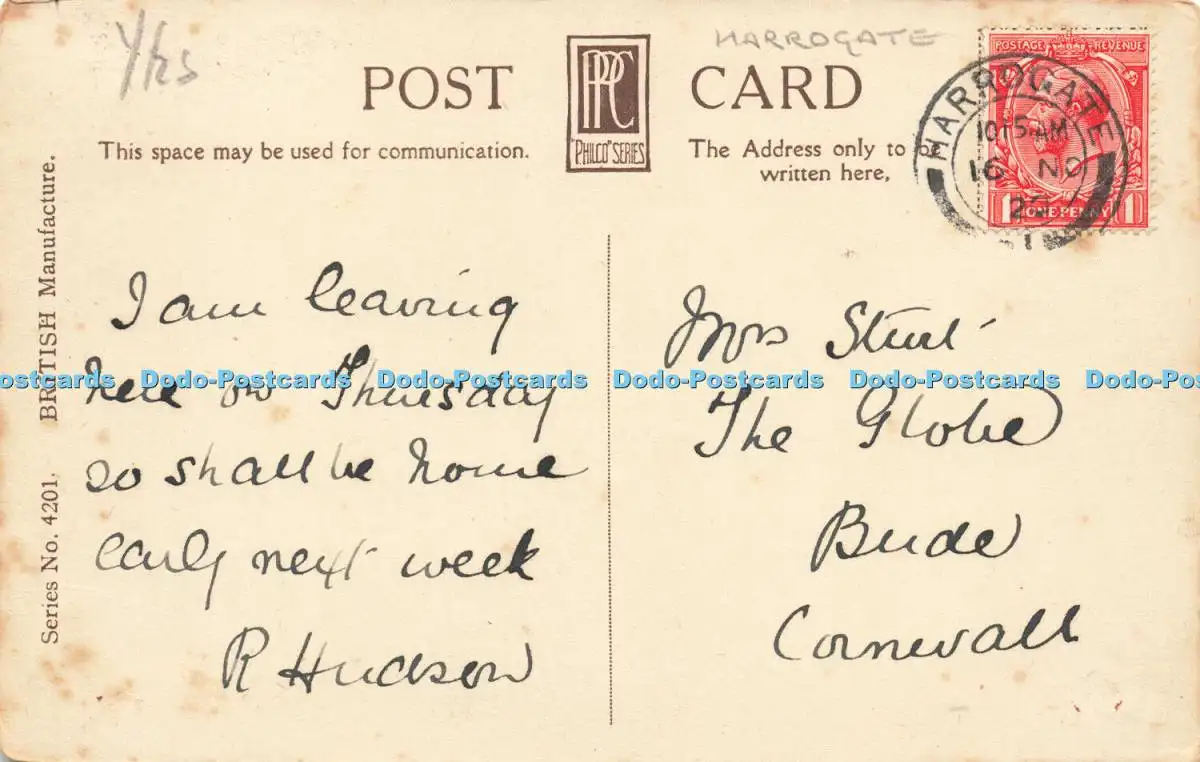 Y/ks
HARROGATE
POST CARD
PPC
"PHILCO" SERIES
This space may be used for communication.
The Address only to be
written here.
POSTAGE REVENUE
1 ONE PENNY 1
HARROGATE
10 15 AM
16 NO
Series No. 4201. BRITISH Manufacture.
I am leaving
here on Thursday
so shall be home
early next week
R Hudson
Mrs
The Globe
Bude
Cornwall
Dodo-Postcards Dodo-Postcards Dodo-Postcards Dodo-Postcards Dodo-Postcards